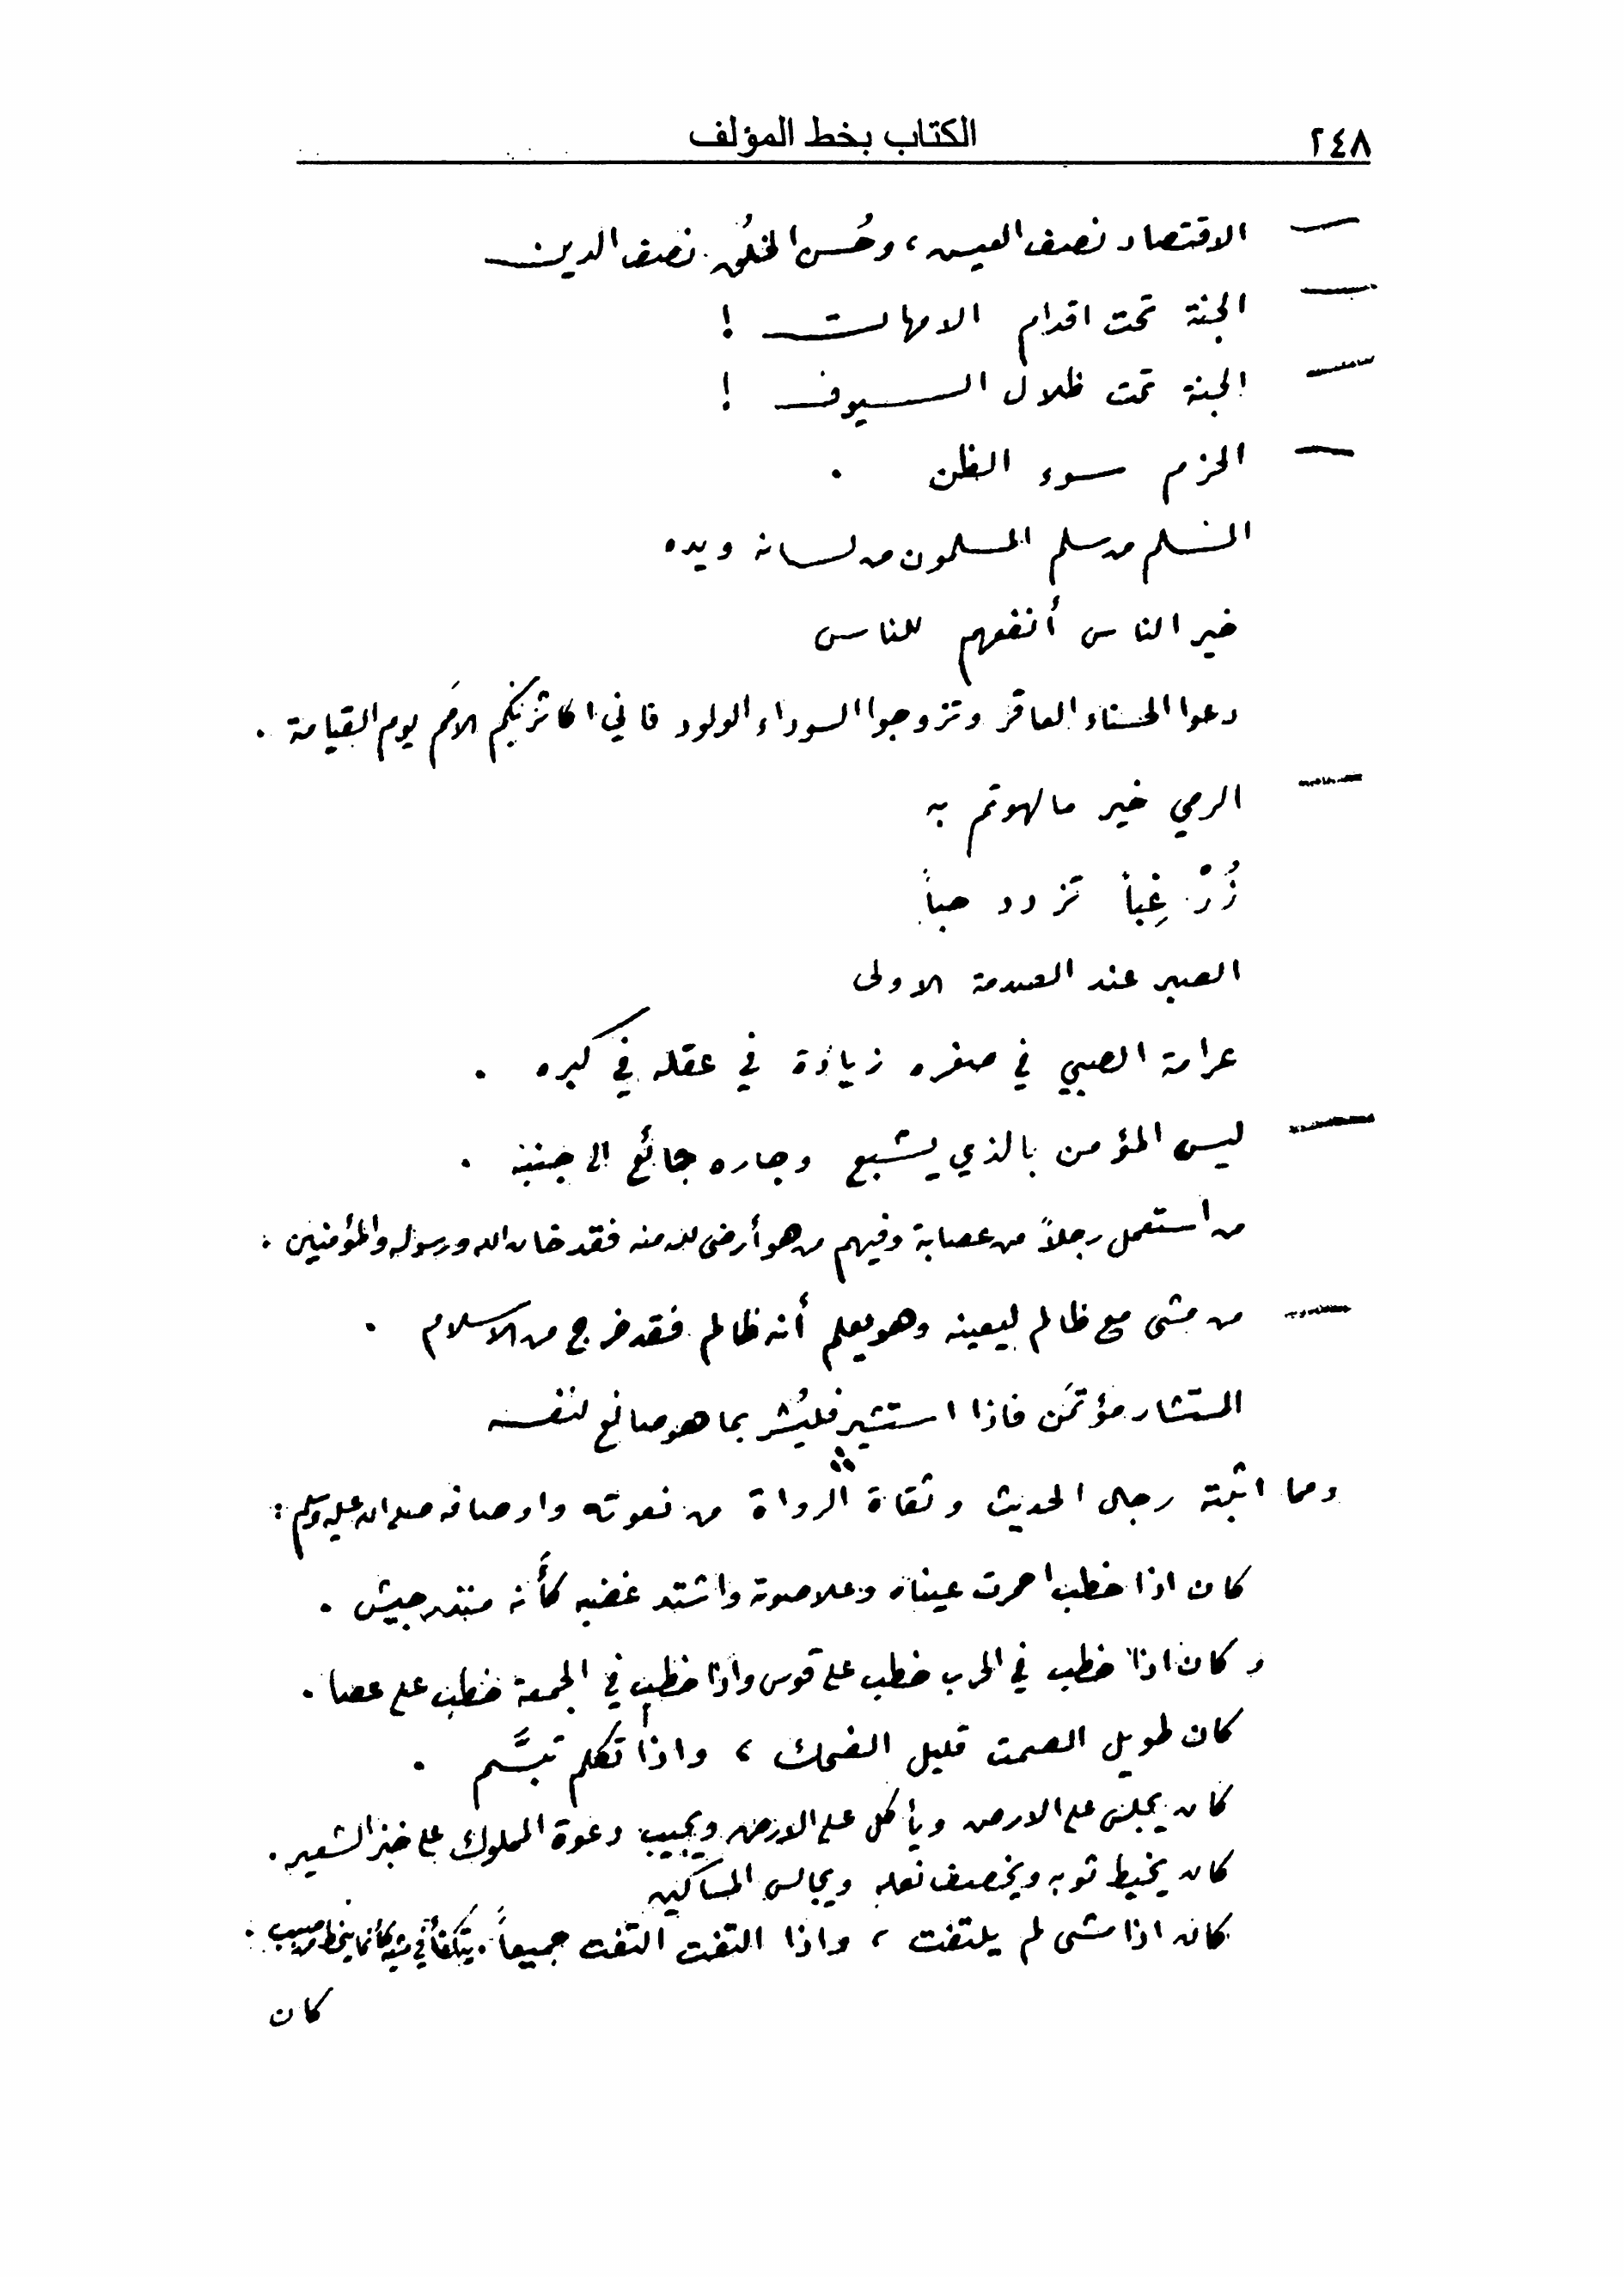 ٢٤٨ الكتاب بخط المؤلف
— الاقتصاد نصف العيش، وحُسن الخلُق نصف الدين
— الجنة تحت اقدام الامهات !
— الجنة تحت ظلال السيوف !
— الحزم سوء الظن .
المسلم من سلم المسلمون من لسانه ويده
خير الناس أنفعهم للناس
دعوا الحسناء العاقر وتزوجوا السوداء الولود فاني اكاثر بكم الأمم يوم القيامة .
— الرمي خير ما لهوتم به
زُرْ غِباً تزدد حباً
الصبر عند الصدمة الاولى
عرامة الصبي في صغره زيادة في عقله في كبره .
— ليس المؤمن بالذي يشبع وجاره جائع الى جنبه .
من استعمل رجلاً من عصابة وفيهم من هو أرضى لله منه فقد خان الله ورسوله والمؤمنين .
— من مشى مع ظالم ليعينه وهو يعلم أنه ظالم فقد خرج من الاسلام .
المستشار مؤتمَن فاذا استشير فليُشر بما هو صانع لنفسه
ومما اثبته رجال الحديث وثقاة الرواة من نعوته واوصافه صلى الله عليه وسلم :
كان اذا خطب احمرت عيناه وعلا صوته واشتد غضبه كأنه منذر جيش .
وكان اذا خطب في الحرب خطب على قوس واذا خطب في الجمعة خطب على عصا .
كان طويل الصمت قليل الضحك ، واذا تكلم تبسَّم .
كان يجلس على الارض ويأكل على الارض ويجيب دعوة المملوك على خبز الشعير .
كان يخيط ثوبه ويخصف نعله ويجالس المساكين
كان اذا مشى لم يلتفت ، واذا التفت التفت جميعاً . يتكفأ في مشيه كأنما ينحط من صبب .
كان